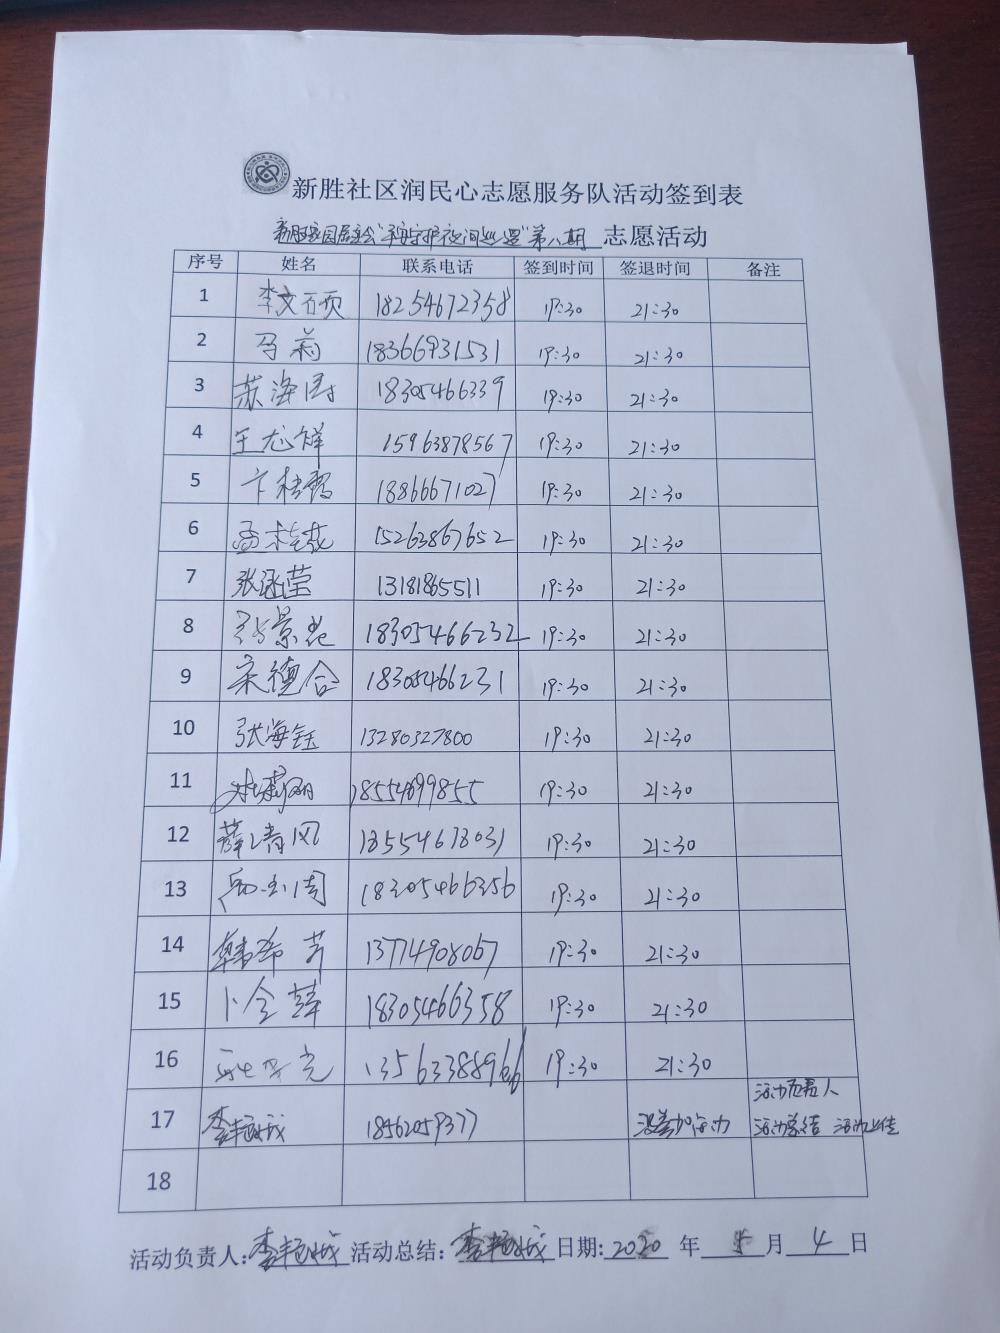 新胜社区润民心志愿服务队活动签到表
新胜家园居委会“平安守护夜间巡逻”第八期 志愿活动
序号 姓名 联系电话 签到时间 签退时间 备注
1 李文硕 18254672358 19:30 21:30
2 马莉 18366931531 19:30 21:30
3 苏海涛 18305466339 19:30 21:30
4 王龙祥 15963878567 19:30 21:30
5 卞桂霞 18866671027 19:30 21:30
6 15263867652 19:30 21:30
7 张涵莹 13181865511 19:30 21:30
8 18305466232 19:30 21:30
9 宋德合 18305466231 19:30 21:30
10 张海钰 13280327800 19:30 21:30
11 杜莉丽 18554699855 19:30 21:30
12 薛清风 18554678031 19:30 21:30
13 18305466356 19:30 21:30
14 韩希芳 13774908067 19:30 21:30
15 卜令葬 18305466358 19:30 21:30
16 13563388966 19:30 21:30
17 李艳城 18562059377 没参加活动 活动负责人
活动总结 活动上传
18
活动负责人:李艳城 活动总结:李艳城 日期:2020 年 5 月 4 日